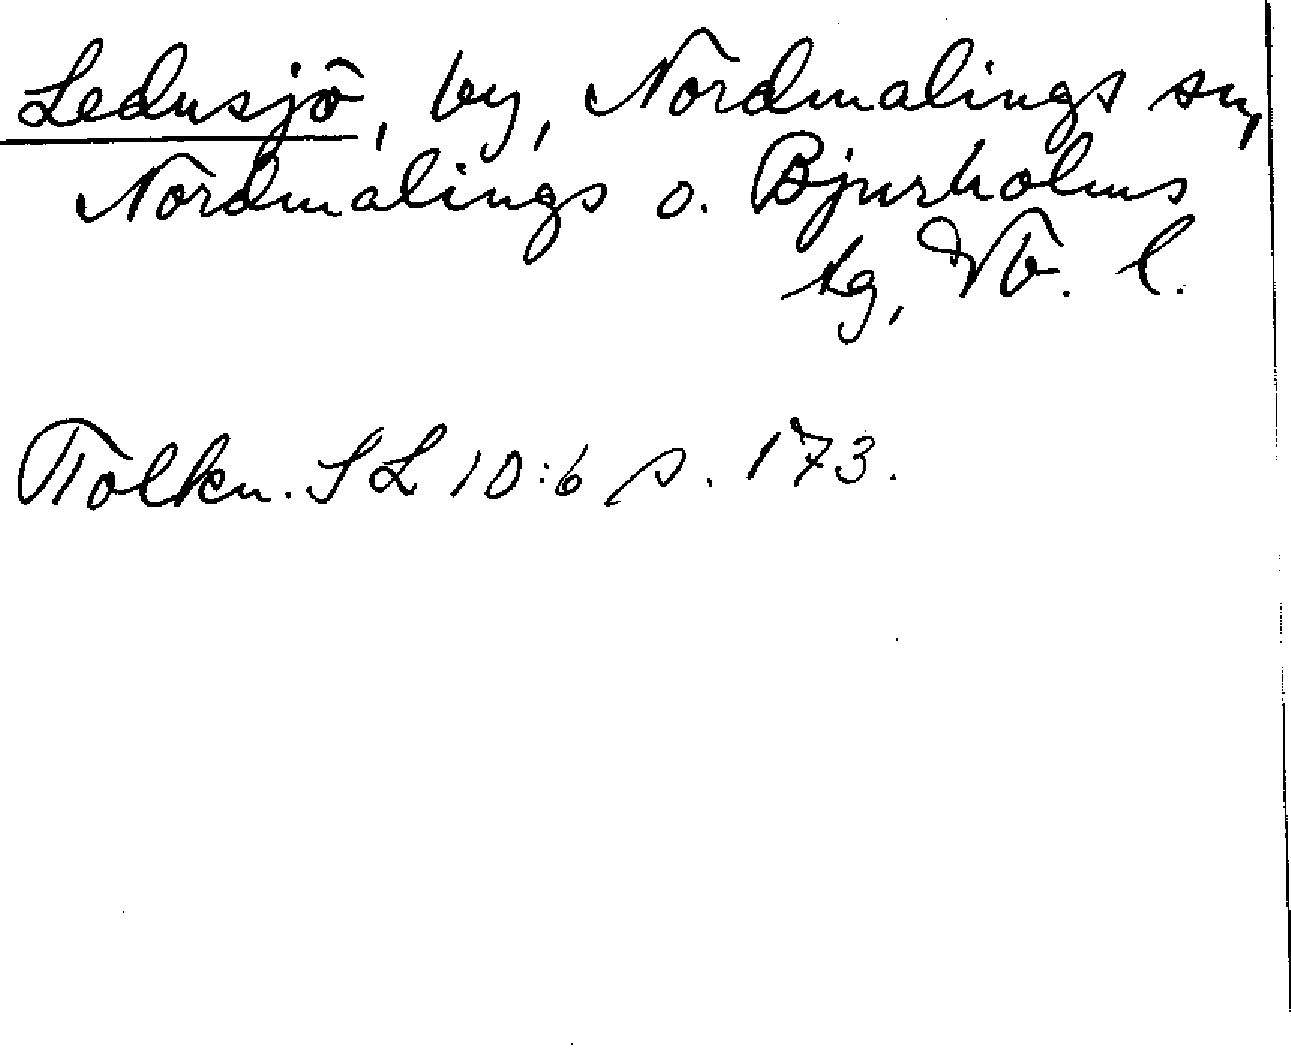 Ledusjö, by, Nordmalings sn,
Nordmalings o. Bjurholms
tg, Vb. l.
Tolkn. SL 10:6 s. 173.